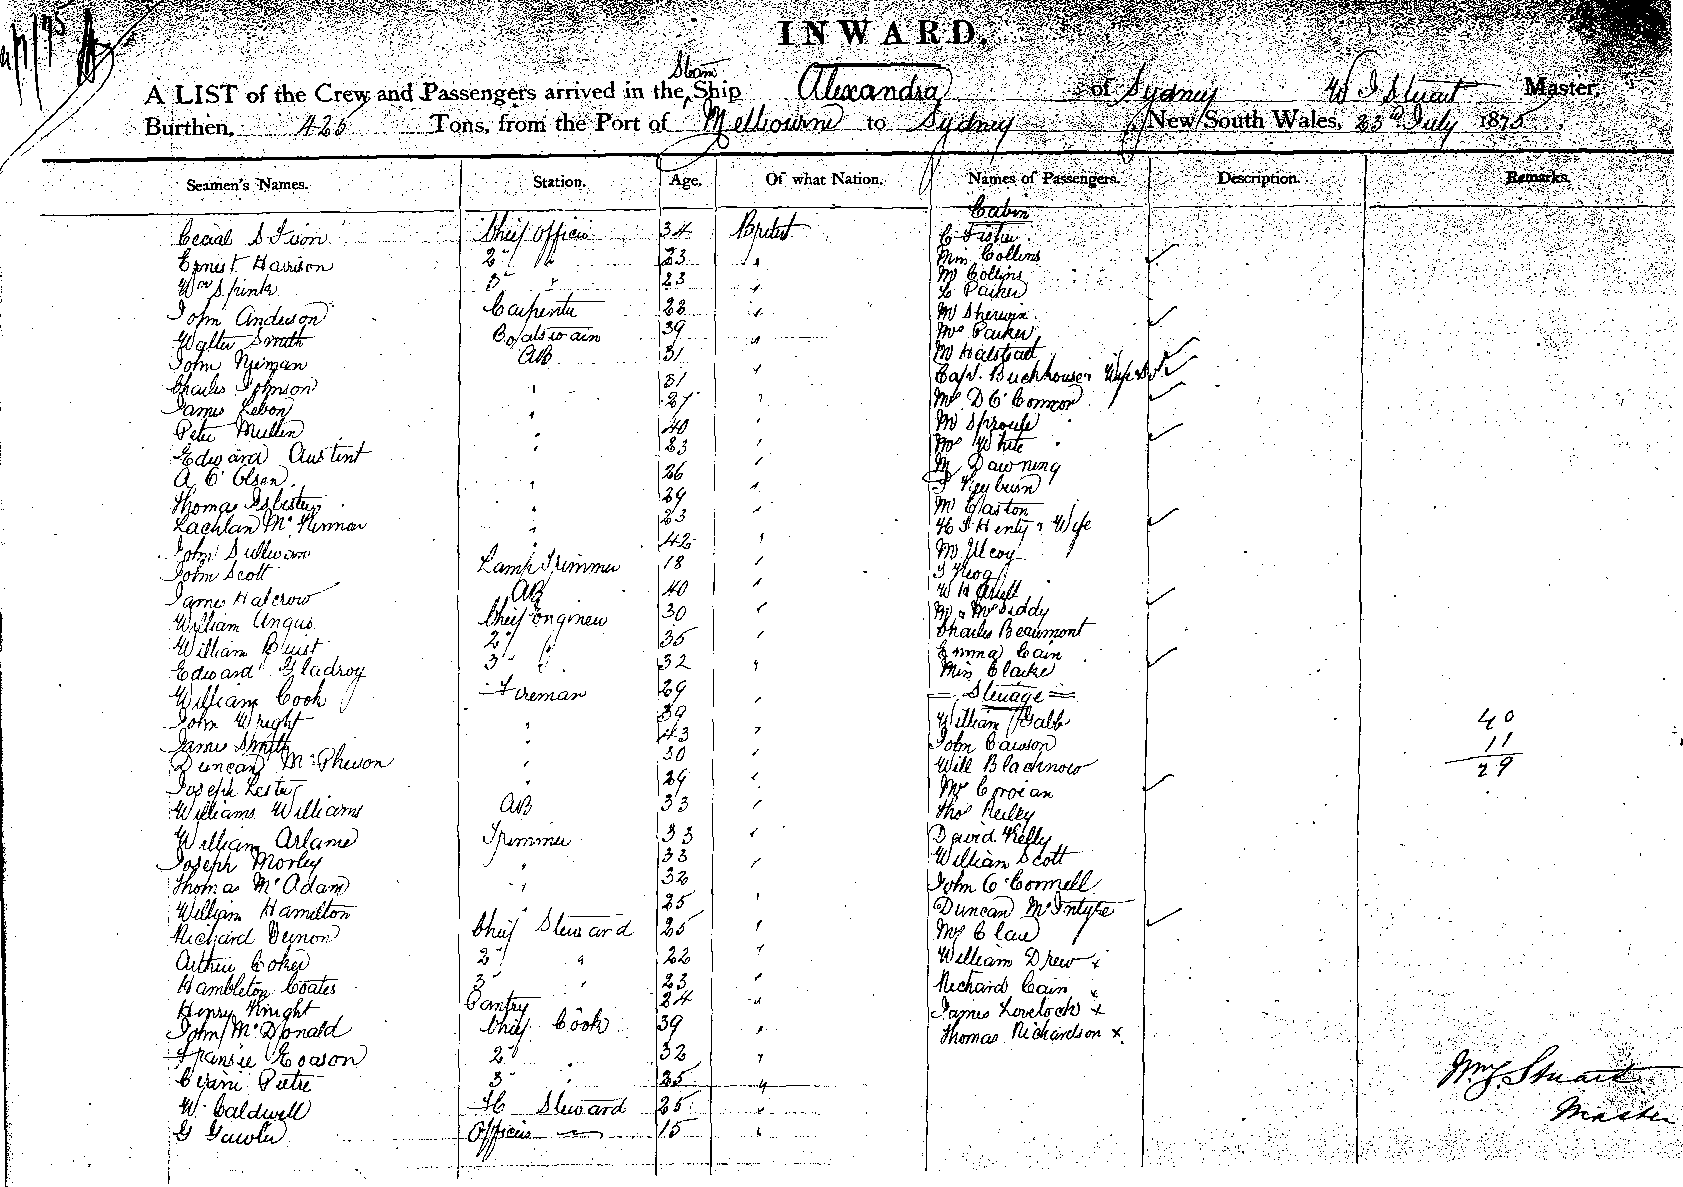 INWARD.
A LIST of the Crew and Passengers arrived in the Steam Ship Alexandra of Sydney W J Stuart Master,
Burthen, 425 Tons, from the Port of Melbourne to Sydney New South Wales, 23rd July 1875
Seamen's Names. Station. Age. Of what Nation. Names of Passengers. Description. Remarks.
Cabin
Chief Officer 34 British C Fisher
Ernest Harrison 2" " 23 " Mrs Collins
Wm Spink 3" " 23 " Mr Collins
L Parker
John Anderson Carpenter 28 " Mr Sherwin
Walter Smith Boatswain 39 " Mrs Parker
John Nyman AB 31 " Mr Halstead
Charles Johnson " 31 " Capt. Buckhouse & Wife
James Lebon " 27 " Mr D O'Connor
Peter Mullen " 40 " Mr Sproule
Edward Austint " 23 " Mrs White
A C Olsen " 26 " Mr Dawning
Thomas Isbister " 29 " J Heyburn
Lachlan McKinnon " 23 " Mr Easton
John Sullivan " 42 " H J Henty & Wife
John Scott Lamp Trimmer 18 " Mr
James Halcrow AB 40 " W H
William Angus Chief Engineer 30 "
William Buist 2" " 35 " Charles Beaumont
Edward Gladroy 3" " 32 " Emma Cain
Miss Clarke
William Cook Fireman 29 " = Steerage =
John Wright " 39 " William Galb 40
James Smith " 43 " John Cawson 11
Duncan McPherson " 30 " Will Blacknow 29
Joseph Lester " 29 " Mr
Williams Williams AB 33 " Thos Reilly
William Arlame Trimmer 33 " David Kelly
Joseph Morley " 33 " William Scott
Thomas McAdam " 32 John O'Connell
William Hamilton " 25 " Duncan McIntyre
Richard Vernon Chief Steward 25 " Mrs Claw
Arthur Coker 2" " 22 " William Drew x
Hambleton Coates 3" " 23 " Richard Cain x
Henry Knight Pantry 24 " James Lovelock x
John McDonald Chief Cook 39 " Thomas Richardson x
Eason 2" " 32 "
Petrie 3" " 25 "
W. Caldwell Steward 25 "
G Gawler Officers " 15 "
Wm J. Stuart
Master